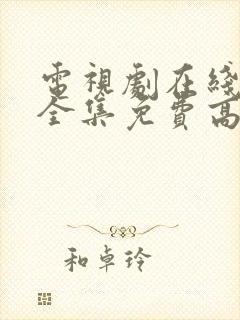 電視劇在綫
全集免費高
和卓玲